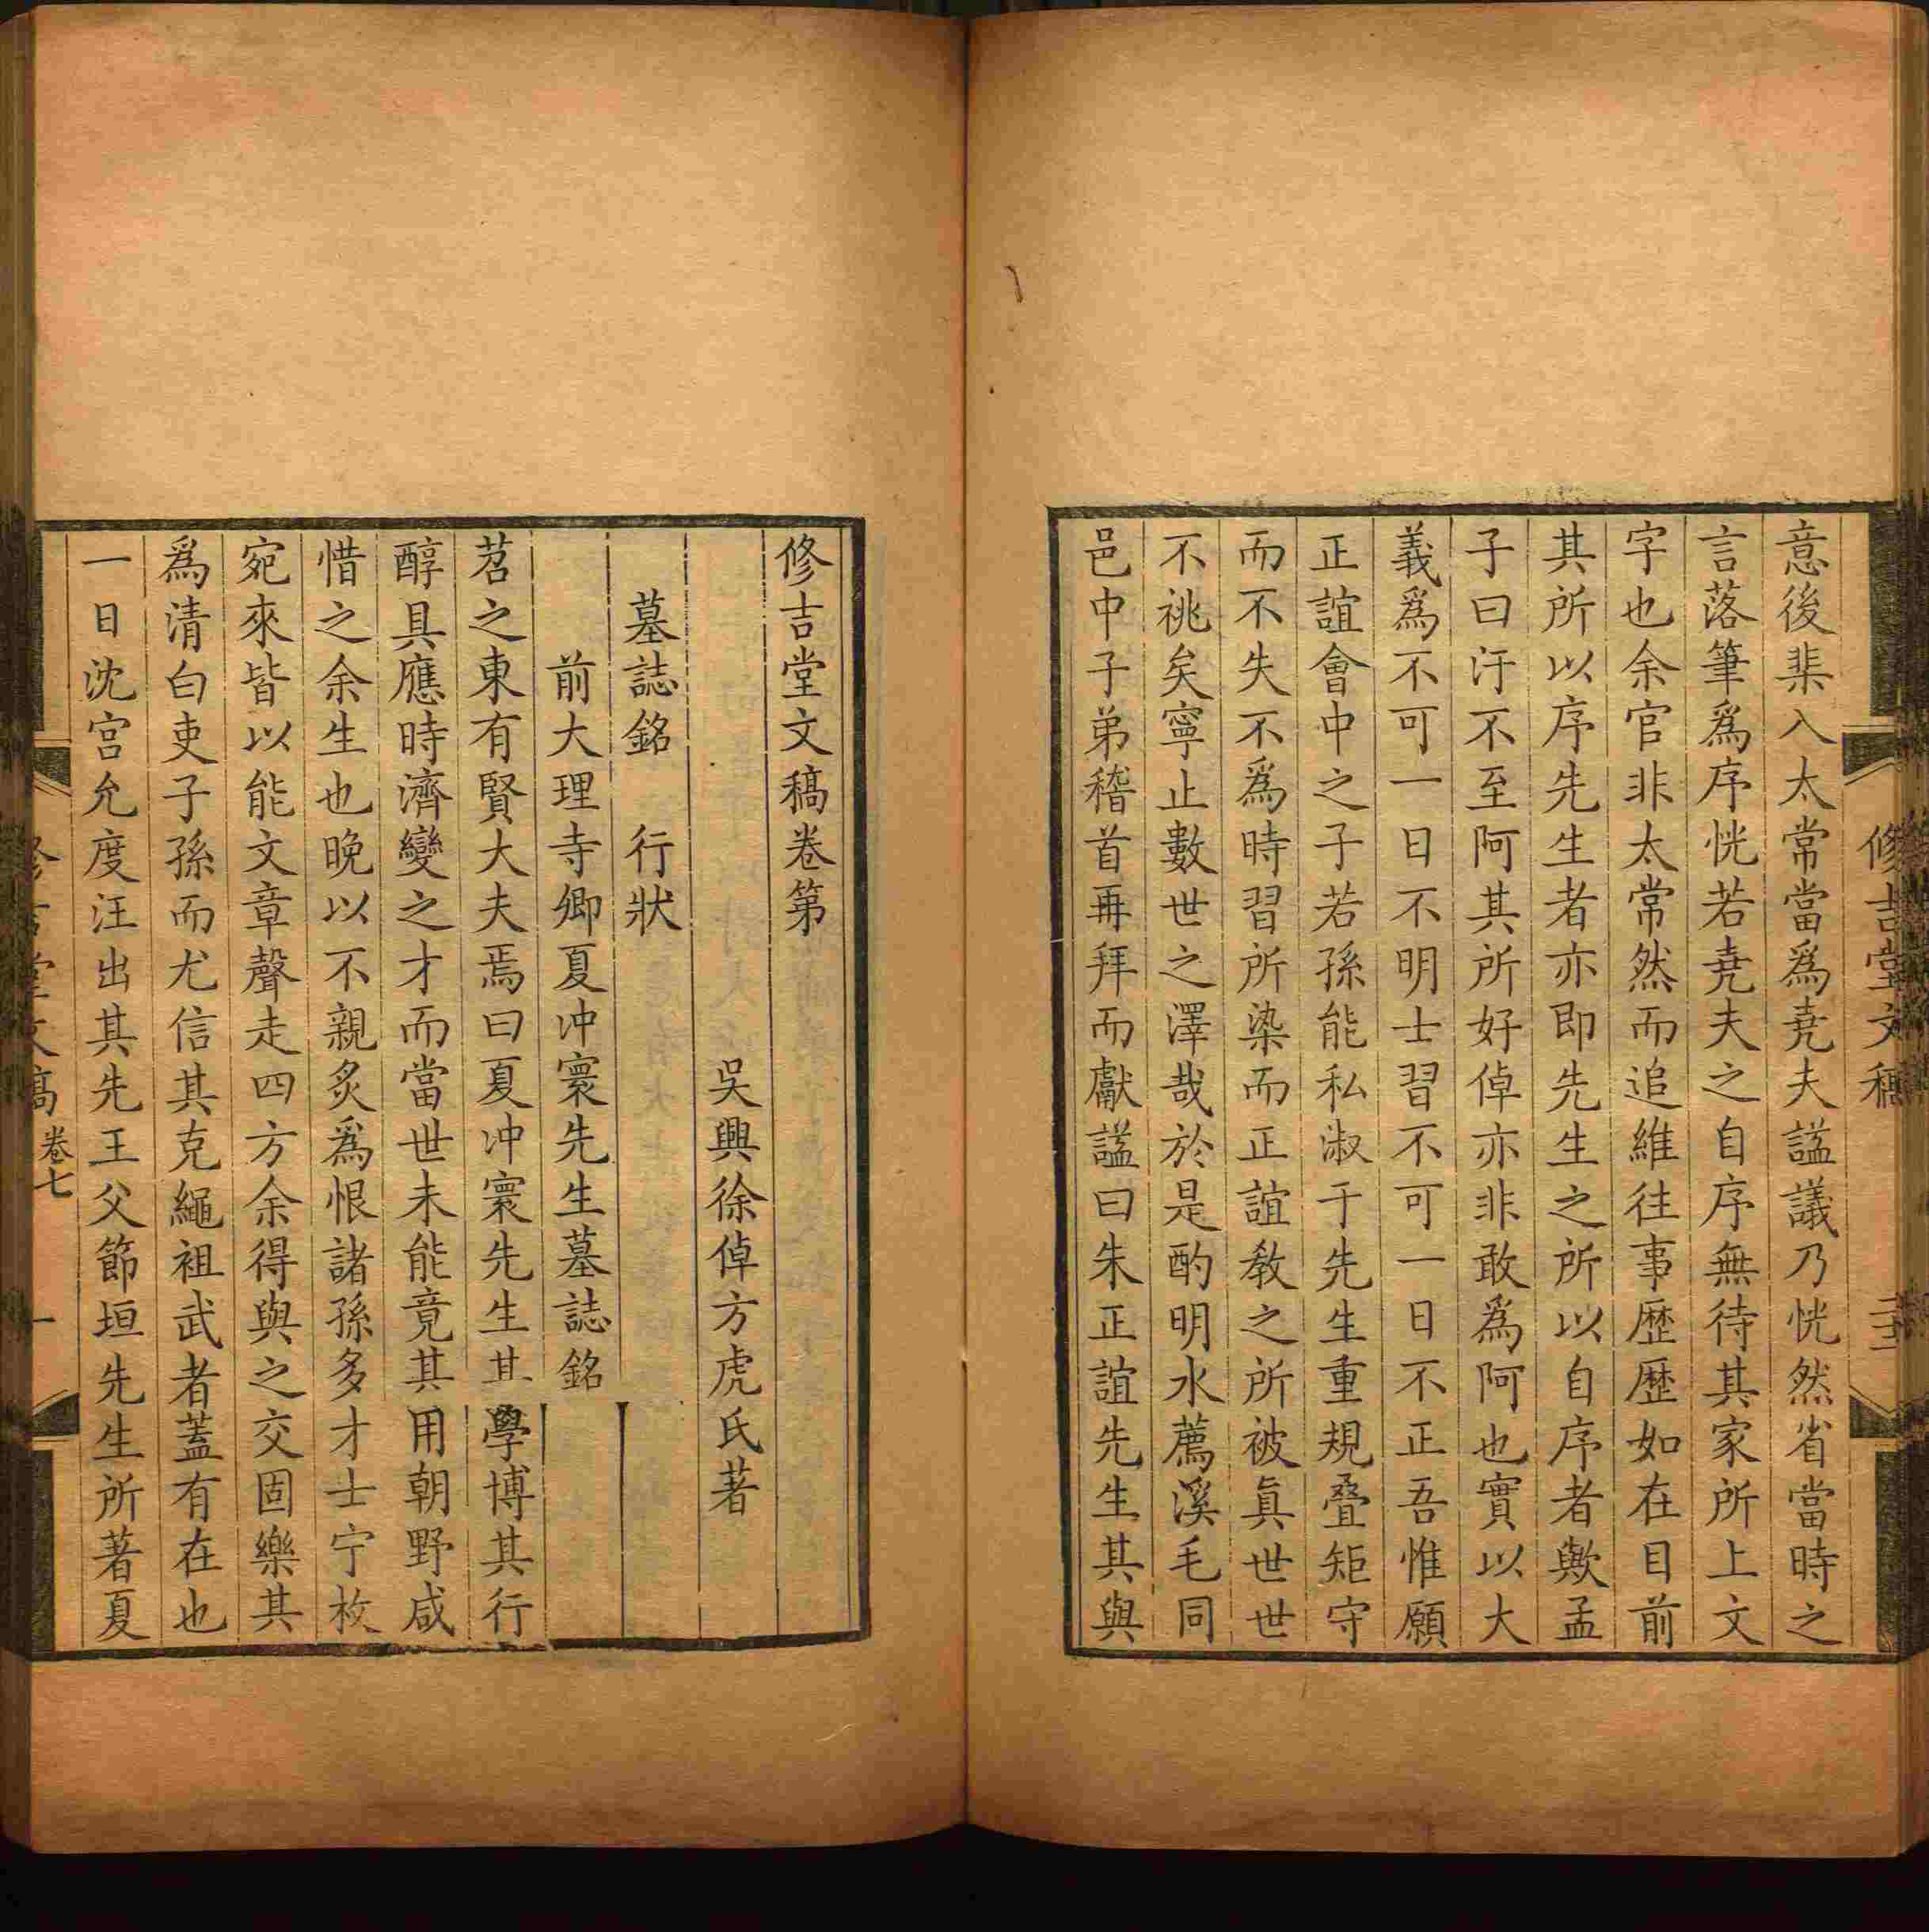 修吉堂文稿
意後棐入太常當爲堯夫諡議乃恍然省當時之
言落筆爲序恍若堯夫之自序無待其家所上文
字也余官非太常然而追維往事歷歷如在目前
其所以序先生者亦即先生之所以自序者歟孟
子曰汙不至阿其所好倬亦非敢爲阿也實以大
義爲不可一日不明士習不可一日不正吾惟願
正誼會中之子若孫能私淑于先生重規疊矩守
而不失不爲時習所染而正誼敎之所被眞世世
不祧矣寧止數世之澤哉於是酌明水薦溪毛同
邑中子弟稽首再拜而獻諡曰朱正誼先生其與
修吉堂文稿卷第
吳興徐倬方虎氏著
墓誌銘 行狀
前大理寺卿夏冲寰先生墓誌銘
苕之東有賢大夫焉曰夏冲寰先生其學博其行
醇具應時濟變之才而當世未能竟其用朝野咸
惜之余生也晚以不親炙爲恨諸孫多才士宁枚
宛來皆以能文章聲走四方余得與之交固樂其
爲清白吏子孫而尤信其克繩祖武者蓋有在也
一日沈宮允度汪出其先王父節垣先生所著夏
修吉堂文稿 卷七 一